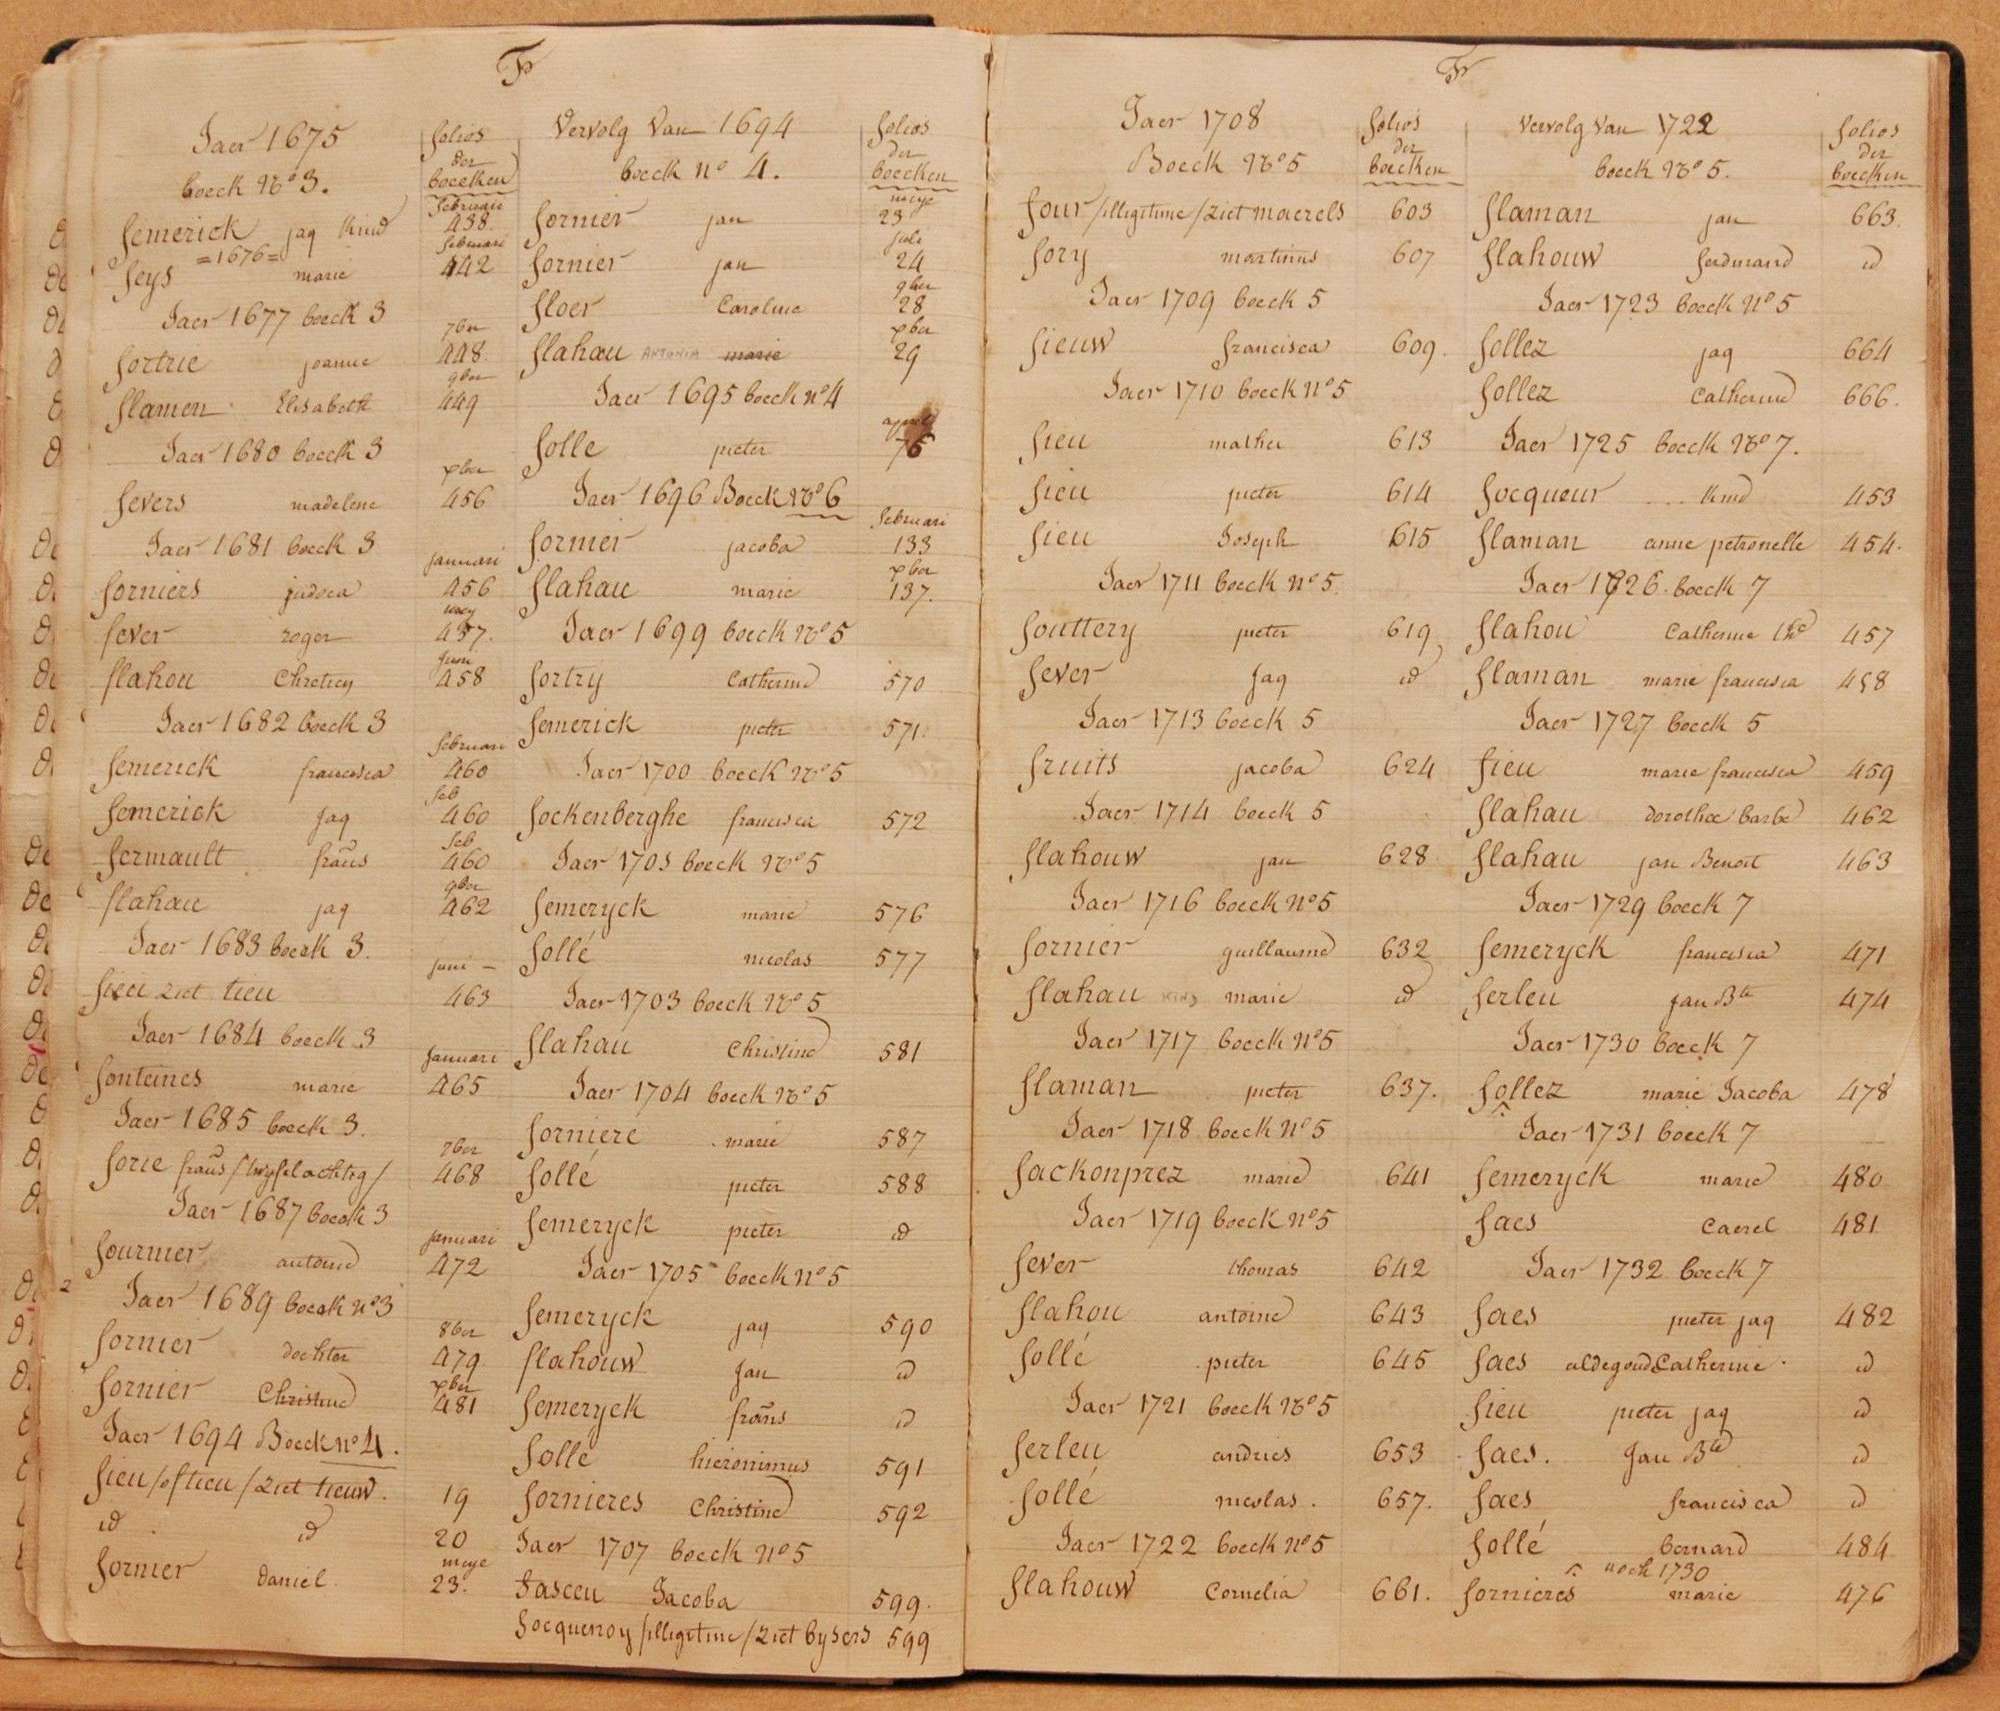 F
Jaer 1675
boeck No 3.
folios
der
boecken
februari
femerick jaq kind 438.
=1676= februari
feys marie 442
Jaer 1677 boeck 3
7ber
fortrie joanne 448.
9ber
flamen Elisabeth 449
Jaer 1680 boeck 3
xber
fevers madelene 456
Jaer 1681 boeck 3
januari
forniers judoca 456
fever roger 457.
Juni
flahou Chretien 458
Jaer 1682 boeck 3
februari
femerick francisca 460
feb
femerick jaq 460
feb
fermault frans 460
9ber
flahau jaq 462
Jaer 1683 boeck 3.
juni
fieu ziet tieu 463
Jaer 1684 boeck 3
januari
fonteines marie 465
Jaer 1685 boeck 3.
7ber
forie frans /twyfelachtig/ 468
Jaer 1687 boeck 3
januari
fournier antoine 472
Jaer 1689 boeck no 3
8ber
fornier dochter 479
xber
fornier Christine 481
Jaer 1694 Boeck no 4.
fieu /of tieu /ziet tieuw. 19
id id 20
meye
fornier daniel 23.
Vervolg Van 1694
boeck no 4.
folios
der
boecken
meye
fornier jan 23
juli
fornier jan 24
9ber
floer Caroline 28
xber
flahau ANTONIA marie 29
Jaer 1695 boeck no 4
april
folle pieter 75
Jaer 1696 Boeck No 6
februari
fornier jacoba 133
xber
flahau marie 137.
Jaer 1699 boeck No 5
fortry Catherine 570
femerick pieter 571.
Jaer 1700 boeck No 5
fockenberghe francisca 572
Jaer 1701 boeck No 5
femeryck marie 576
follé nicolas 577
Jaer 1703 boeck No 5
flahau Christine 581
Jaer 1704 boeck No 5
forniere marie 587
follé pieter 588
femeryck pieter id
Jaer 1705 boeck No 5
femeryck jaq 590
flahouw Jan id
femeryck frans id
folle hieronimus 591
fornieres Christine 592
Jaer 1707 boeck No 5
fasceu Jacoba 599.
focquenoy /illigitime /ziet bysers 599
F
Jaer 1708
Boeck No 5
folios
der
boecken
four /illigitime /ziet maerels 603
fory martinus 607
Jaer 1709 boeck 5
fieuw francisca 609.
Jaer 1710 boeck No 5
fieu mathei 613
fieu pieter 614
fieu Joseph 615
Jaer 1711 boeck no 5.
fouttery pieter 619
fever Jaq id
Jaer 1713 boeck 5
fruits jacoba 624
Jaer 1714 boeck 5
flahouw jan 628
Jaer 1716 boeck No 5
fornier guillaume 632
flahau KIND marie id
Jaer 1717 boeck No 5
flaman pieter 637.
Jaer 1718 boeck No 5
fackonprez marie 641
Jaer 1719 boeck No 5
fever thomas 642
flahou antoine 643
follé pieter 645
Jaer 1721 boeck No 5
ferleu andries 653
follé nicolas. 657.
Jaer 1722 boeck No 5
flahouw Cornelia 661.
Vervolg Van 1722
boeck No 5.
folios
der
boecken
flaman jan 663.
flahouw ferdinand id
Jaer 1723 boeck No 5
follez jaq 664
follez Catherine 666.
Jaer 1725 boeck No 7.
focqueur ... kind 453
flaman anne petronelle 454.
Jaer 1726. boeck 7
flahou Catherine 457
flaman marie francisca 458
Jaer 1727 boeck 5
fieu marie francisca 459
flahau dorothee barbe 462
flahau jan Benoit 463
Jaer 1729 boeck 7
femeryck francisca 471
ferleu jan Bte 474
Jaer 1730 boeck 7
follez marie Jacoba 478
Jaer 1731 boeck 7
femeryck marie 480
faes Caerel 481
Jaer 1732 boeck 7
faes pieter jaq 482
faes aldegonde Catherine. id
fieu pieter jaq id
faes. Jan Bte id
faes francisca id
follé bernard 484
noch 1730
fornieres marie 476